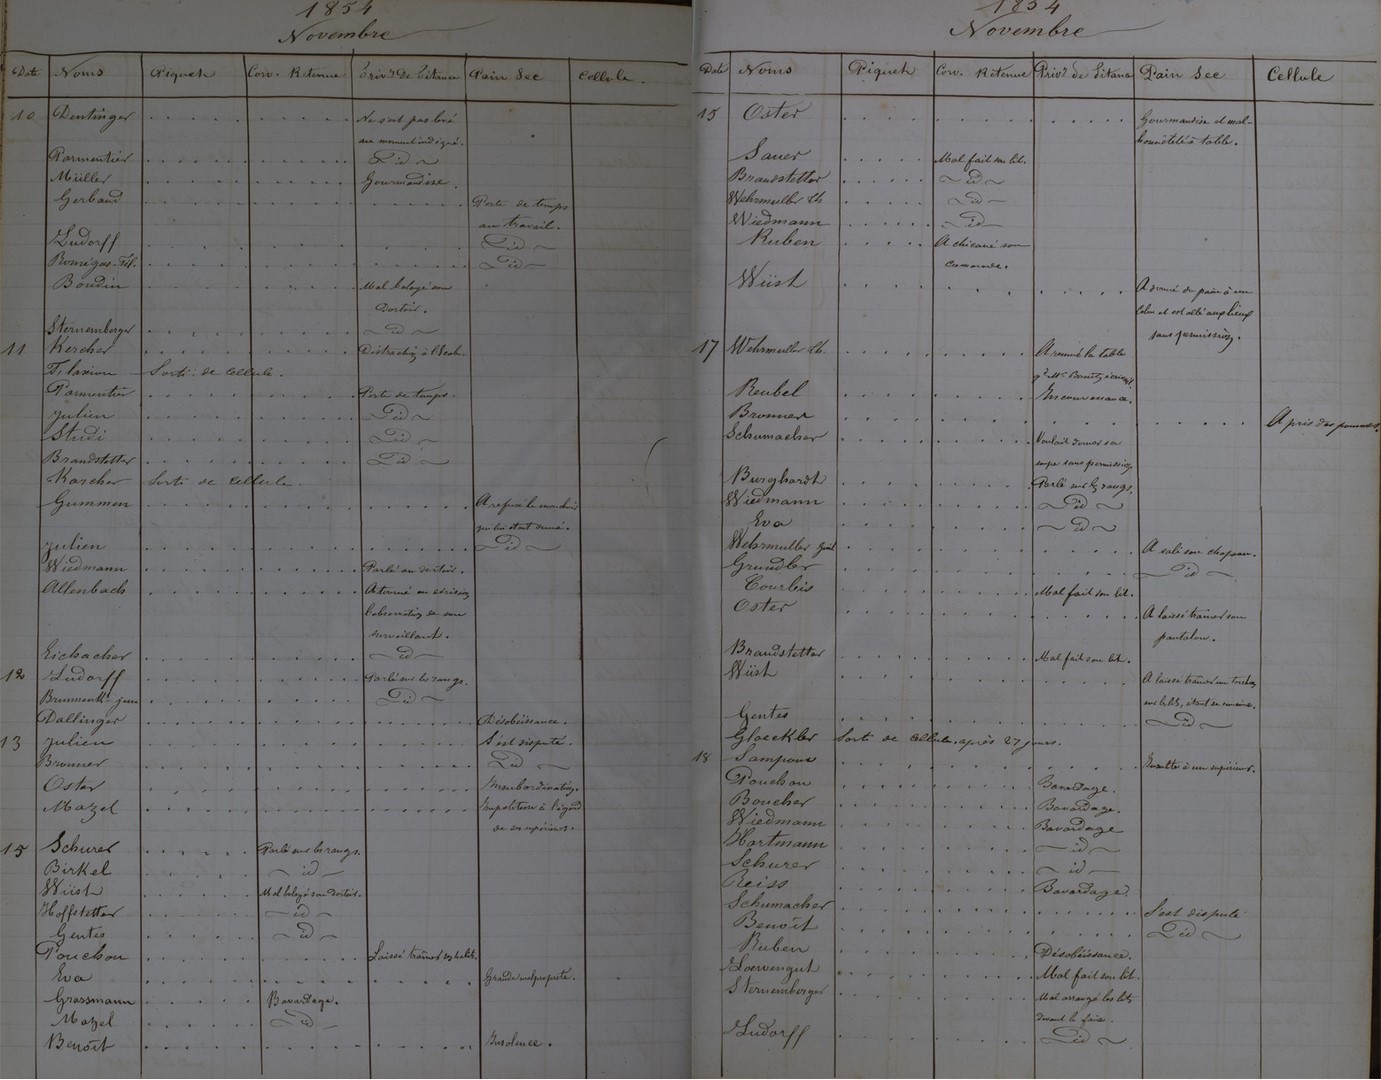 1854
Novembre
Date Noms Piquet Corv. Retenue Priv.n De Gitane Pain Sec Cellule.
10 Dentinger Ne s'est pas levé
au moment indiqué.
Parmentier id
Müller Gourmandise.
Gerbaud Perte de temps
au travail.
Ludorff id
Romégas Fél. id
Boudin Mal balayé son
Dortoir.
Sternemberger id
11 Kercher Distraction à l'Ecole.
Filaxion Sorti de Cellule.
Parmentier Perte de temps.
Julien id
Studi id
Brandstetter id
Karcher Sorti de Cellule.
Gummen A refusé le mouchoir
qui lui était donné.
Julien id
Wiedmann Parlé au dortoir.
Allenbach A tourné en dérision
l'observation de son
surveillant.
Eichacher id
12 Ludorff Parlé sur les rangs.
Brummenk jeune id
Dallinger Désobéissance.
13 Julien S'est disputé.
Bronner id
Oster Insubordination.
Mazel Impolitesse à l'égard
de ses supérieurs.
15 Schurer Parlé sur les rangs.
Birkel id
Wüst Mal balayé son dortoir.
Hoffstetter id
Gentes id
Pouchon Laissé traîner ses habits.
Eva Grande malpropreté.
Grassmann Bavardage.
Mazel id
Benoît Insolence.
1854
Novembre
Date Noms Piquet Corv. Retenue Priv.n de Gitane Pain Sec Cellule
15 Oster Gourmandise et mal-
honnêteté à table.
Sauer Mal fait son lit.
Brandstetter id
Wehrmuller Ch id
Wiedmann id
Ruben A chicané son
camarade.
Wüst A donné du pain à un
Colon et est allé aux lieux
sans permission.
17 Wehrmuller Ch. A remué la table
qd Mr écrivait.
Reubel Inconvenance.
Bronner A pris des pommes.
Schumacher Voulait donner sa
soupe sans permission.
Burghardt Parlé sur les rangs.
Wiedmann id
Eva id
Wehrmuller A sali son chapeau.
Grundler id
Courbis Mal fait son lit.
Oster A laissé traîner son
pantalon.
Brandstetter Mal fait son lit.
Wüst A laissé traîner un torchon
sur le lit, étant de cuisine.
Gentes id
Gloeckler Sorti de Cellule, après 27 jours.
18 Sampoux Insulte à un supérieur.
Pouchon Bavardage.
Boucher Bavardage.
Wiedmann Bavardage
Hartmann id
Schurer id
Reiss Bavardage.
Schumacher S'est disputé
Benoît id
Ruben Désobéissance.
Loewengut Mal fait son lit.
Sternemberger Mal arrangé les lits
devant le faire.
Ludorff id